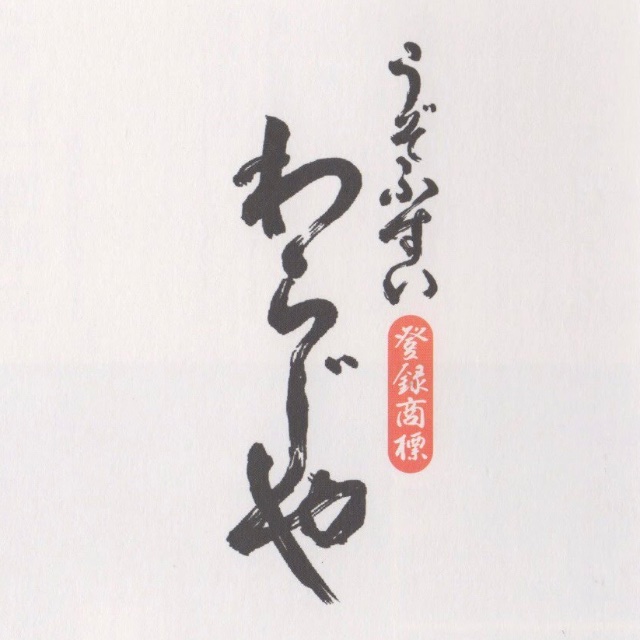 うぞふすい
登録商標
わらじや